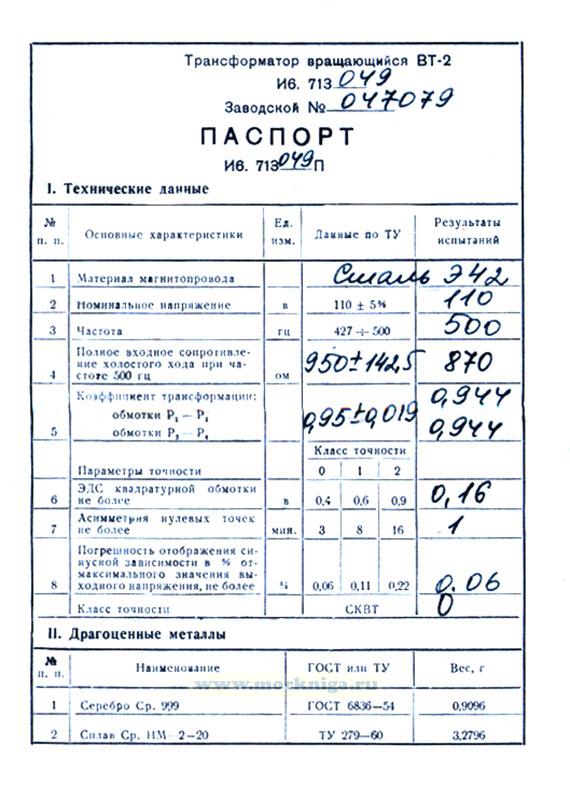 Трансформатор вращающийся ВТ-2
И6. 713 049
Заводской № 047079
ПАСПОРТ
И6. 713 049 П
I. Технические данные
№ п. п. Основные характеристики Ед. изм. Данные по ТУ Результаты испытаний
1 Материал магнитопровода Сталь Э42
2 Номинальное напряжение в 110 ± 5% 110
3 Частота гц 427 ÷ 500 500
4 Полное входное сопротивле-
ние холостого хода при ча-
стоте 500 гц ом 950±142,5 870
5 Коэффициент трансформации:
обмотки Р₁ — Р₁ 0,95±0,019 0,944
обмотки Р₃ — Р₄ 0,944
Класс точности
Параметры точности 0 1 2
6 ЭДС квадратурной обмотки
не более в 0,4 0,6 0,9 0,16
7 Асимметрия нулевых точек
не более мин. 3 8 16 1
8 Погрешность отображения си-
нусной зависимости в % от-
максимального значения вы-
ходного напряжения, не более % 0,06 0,11 0,22 0.06
Класс точности СКВТ 0
II. Драгоценные металлы
№ п. п. Наименование ГОСТ или ТУ Вес, г
www.morkniga.ru
1 Серебро Ср. 999 ГОСТ 6836—54 0,9096
2 Сплав Ср. НМ—2—20 ТУ 279—60 3,2796